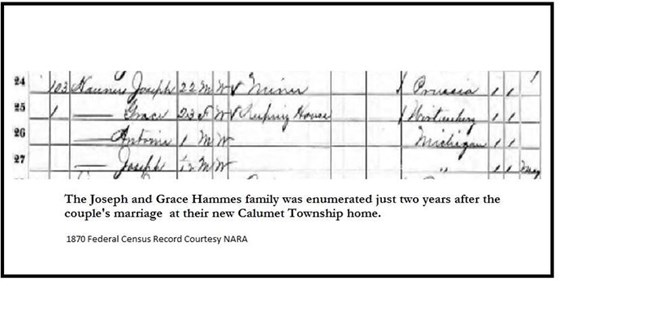 24 103 Hammes Joseph 22 M W Miner Prussia 1 1
25 1 — Grace 23 F W Keeping House 1 1
26 — Antonia 1 M W Michigan 1 1
27 — Joseph /12 M W " 1 1 May
The Joseph and Grace Hammes family was enumerated just two years after the
couple's marriage at their new Calumet Township home.
1870 Federal Census Record Courtesy NARA